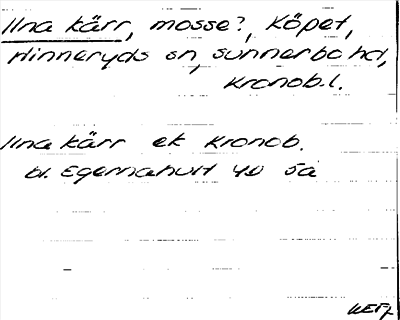 Ilna kärr, mosse?, Köpet,
Hinneryds sn, Sunnerbo hd,
Kronob. l.
Ilna kärr ek Kronob.
bl. Egernahult 4D 5a